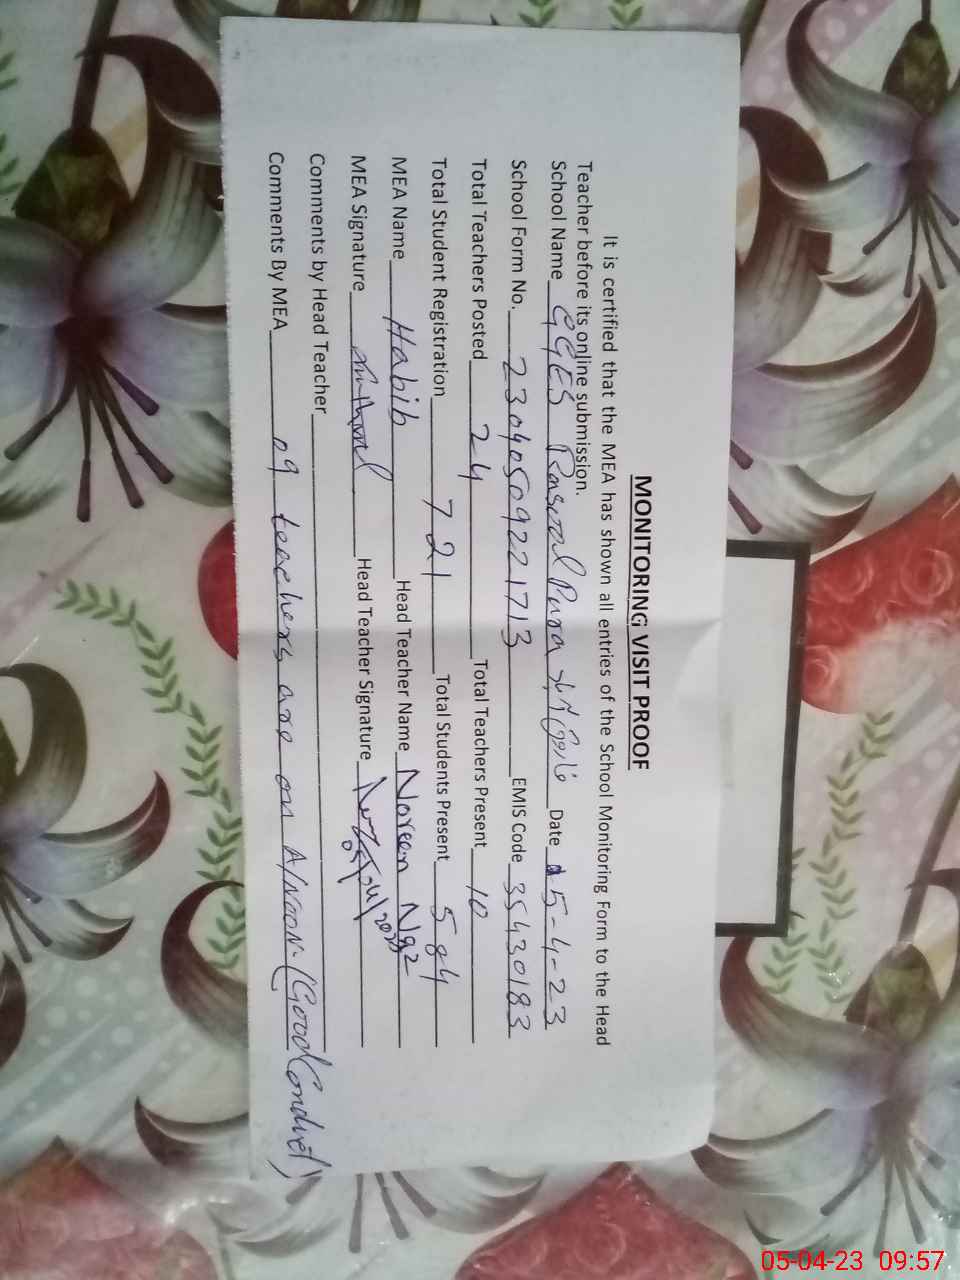 MONITORING VISIT PROOF
It is certified that the MEA has shown all entries of the School Monitoring Form to the Head
Teacher before its online submission.
School Name GGES Rasool Pura Date 5-4-23
School Form No. 23040509221713 EMIS Code 35430183
Total Teachers Posted 24 Total Teachers Present 10
Total Student Registration 721 Total Students Present 584
MEA Name Habib Head Teacher Name Noreen Naz
MEA Signature Head Teacher Signature
05/04/2023
Comments by Head Teacher
Comments By MEA 09 teachers are on A/Noon. (Good Conduct)
05-04-23 09:57